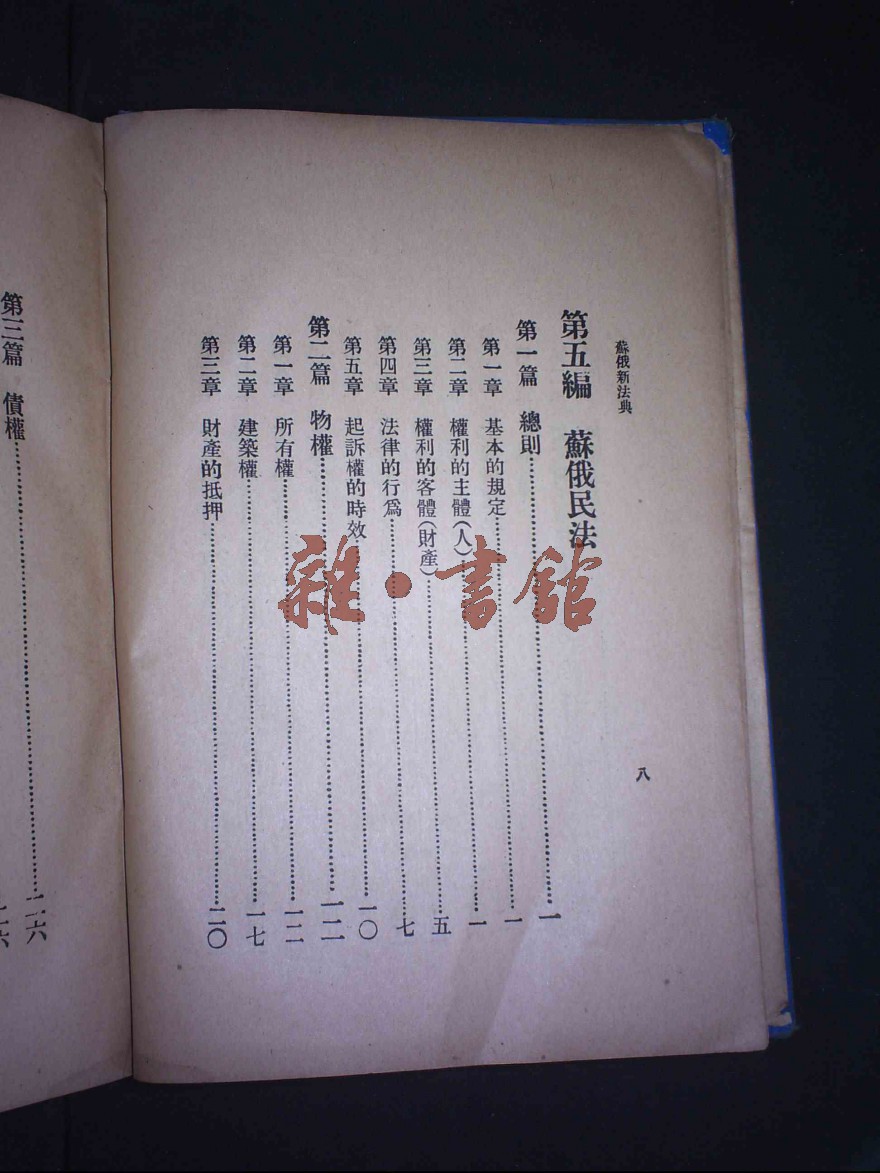 蘇俄新法典
八
第五編 蘇俄民法
第一篇 總則……一
第一章 基本的規定……一
第二章 權利的主體(人)……一
第三章 權利的客體(財產)……五
第四章 法律的行爲……七
第五章 起訴權的時效……一〇
第二篇 物權……一二
第一章 所有權……一二
第二章 建築權……一七
第三章 財產的抵押……二〇
第三篇 債權……二六
雜·書館